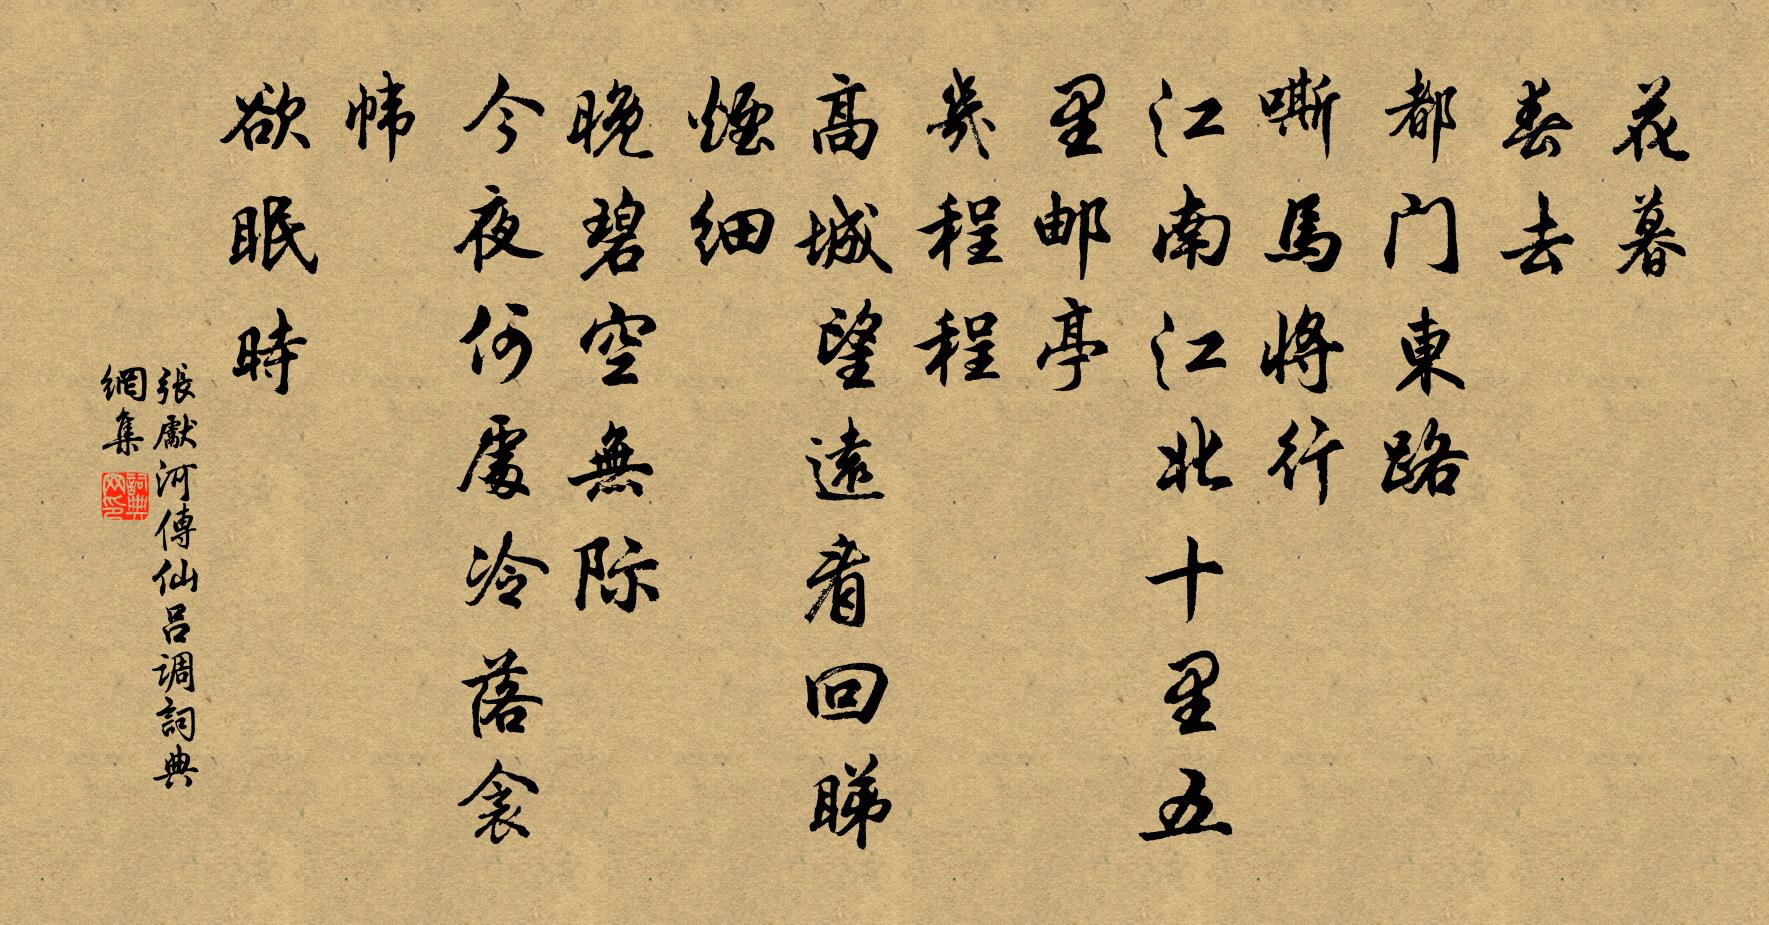 花暮
春去
都门東路
嘶馬將行
江南江北十里五
里邮亭
幾程程
高城望遠看回睇
煙細
晚碧空無际
今夜何處冷落衾
幃
欲眠時
張獻河傳仙吕调詞典
網集
詞典网印